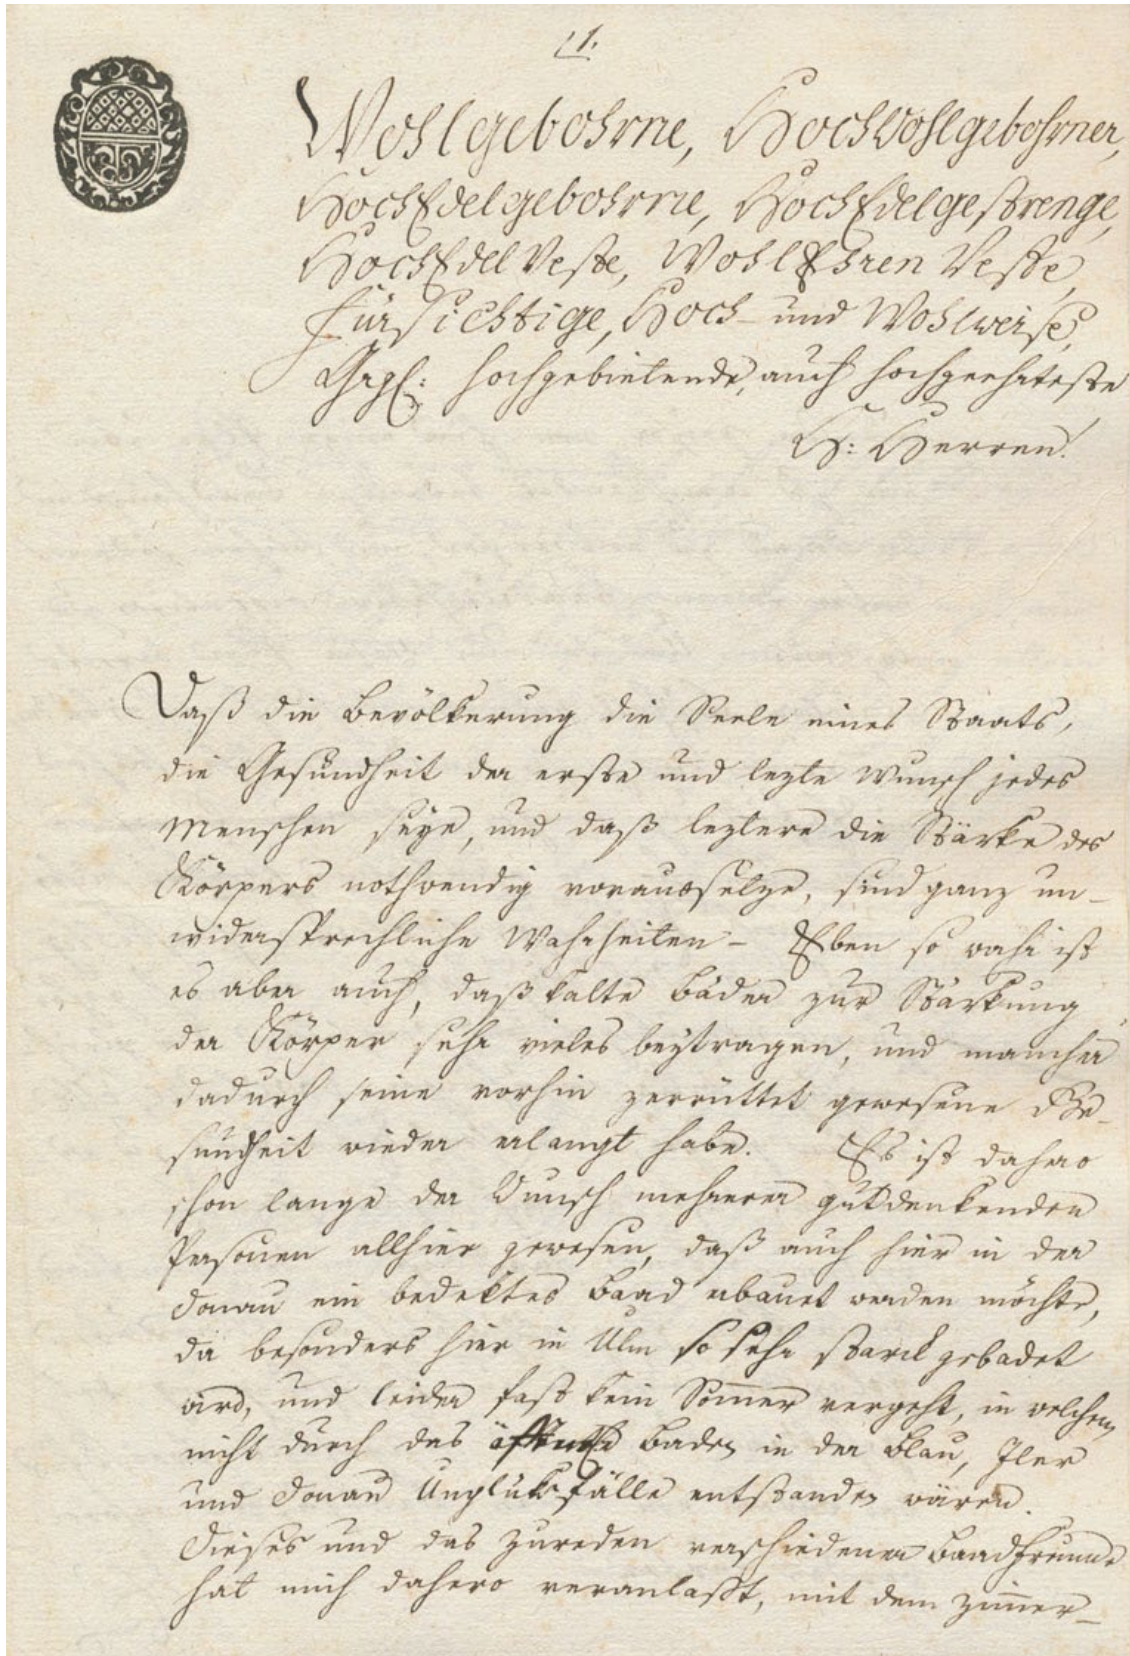 1.
Wohlgebohrne, HochWohlgebohrner,
HochEdelgebohrne, HochEdelgestrenge,
HochEdel Veste, WohlEhren Veste,
Fürsichtige, Hoch- und Wohlweise,
hochgebietende, auch hochgeehrteste
H: Herren!
Daß die Bevölkerung die Seele eines Staats,
die Gesundheit der erste und lezte Wunsch jedes
Menschen seye, und daß leztere die Stärke des
Körpers nothwendig voraussetze, sind ganz un-
widersprechliche Wahrheiten - Eben so wahr ist
es aber auch, daß kalte Bäder zur Stärkung
der Körper sehr vieles beytragen, und mancher
dadurch seine vorhin zerrüttet gewesene Ge-
sundheit wieder erlangt habe. Es ist dahero
schon lange der Wunsch mehrerer gutdenkenden
Personen allhier gewesen, daß auch hier in der
Donau ein bedektes Baad erbauet werden möchte,
da besonders hier in Ulm so sehr starck gebadet
wird, und leider fast kein Som̅er vergeht, in welchem
nicht durch das Baden in der Blau, Iler
und Donau Unglüksfälle entstanden wären.
Dieses und das Zureden verschiedener Baadfreunde
hat mich dahero veranlaßt, mit dem Zim̅er-